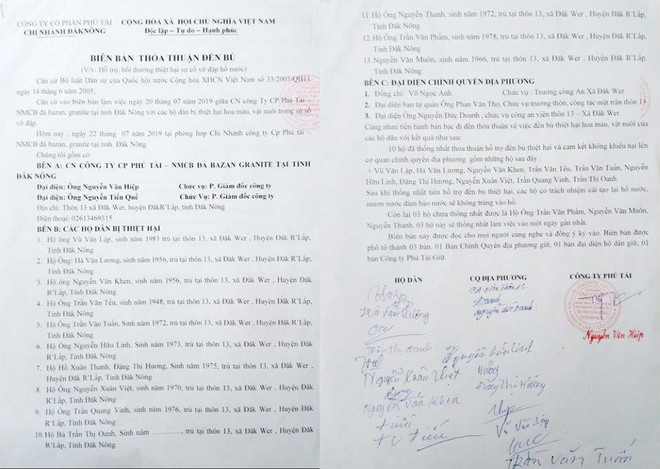 CÔNG TY CỔ PHẦN PHÚ TÀI
CHI NHÁNH ĐĂKNÔNG
CỘNG HÒA XÃ HỘI CHỦ NGHĨA VIỆT NAM
Độc lập – Tự do – Hạnh phúc
BIÊN BẢN THỎA THUẬN ĐỀN BÙ
(V/v: Hỗ trợ, bồi thường thiệt hại sự cố vỡ đập hồ nước)
Căn cứ Bộ luật Dân sự của Quốc hội nước Cộng hòa XHCN Việt Nam số 33/2005/QH11,
ngày 14 tháng 6 năm 2005;
Căn cứ vào biên bản làm việc ngày 20 tháng 07 năm 2019 giữa CN công ty CP Phú Tài –
NMCB đá bazan, granite tại tỉnh Đăk Nông với các hộ dân bị thiệt hại hoa màu, vật nuôi trong sự số
vỡ đập.
Hôm nay , ngày 22 tháng 07 năm 2019 tại phòng họp Chi Nhánh công ty Cp Phú Tài –
NMCB đá bazan, granite tại tỉnh Đăk Nông.
Chúng tôi gồm có:
BÊN A: CN CÔNG TY CP PHÚ TÀI – NMCB ĐÁ BAZAN GRANITE TẠI TỈNH
ĐĂK NÔNG
Đại diện: Ông Nguyễn Văn Hiệp Chức vụ: P. Giám đốc công ty
Đại diện: Ông Nguyễn Tiến Quế Chức Vụ: P. Giám đốc công ty
Địa chỉ: Thôn 13 xã Đăk Wer, huyện ĐăkR'Lấp, tỉnh Đăk Nông
Điện thoại: 02613469315
BÊN B: CÁC HỘ DÂN BỊ THIỆT HẠI
1. Hộ ông Vũ Văn Lập, sinh năm 1983 trú tại thôn 13, xã Đăk Wer , Huyện Đăk R'Lấp,
Tỉnh Đăk Nông
2. Hộ Ông: Hà Văn Lương, sinh năm 1956, trú tại thôn 13, xã Đăk Wer , Huyện Đăk R'Lấp,
Tỉnh Đăk Nông
3. Hộ ông Nguyễn Văn Khen, sinh năm 1956, trú tại thôn 13, xã Đăk Wer , Huyện Đăk
R'Lấp, Tỉnh Đăk Nông
4. Hộ Ông Trần Văn Tếu, sinh năm 1948, trú tại thôn 13, xã Đăk Wer , Huyện Đăk R'Lấp,
Tỉnh Đăk Nông
5. Hộ Ông Trần Văn Tuấn, Sinh năm 1972, trú tại thôn 13, xã Đăk Wer , Huyện Đăk R'Lấp,
Tỉnh Đăk Nông
6. Hộ Ông Nguyễn Hữu Linh, Sinh năm 1973, trú tại thôn 13, xã Đăk Wer , Huyện Đăk
R'Lấp, Tỉnh Đăk Nông
7. Hộ Hồ Xuân Thanh, Đặng Thị Hương, Sinh năm 1975, trú tại thôn 13, xã Đăk Wer ,
Huyện Đăk R'Lấp, Tỉnh Đăk Nông
8. Hộ Ông Nguyễn Xuân Việt, sinh năm 1970, trú tại thôn 13, xã Đăk Wer , Huyện Đăk
R'Lấp, Tỉnh Đăk Nông
9. Hộ Ông Trần Quang Vinh, sinh năm 1976, trú tại thôn 13, xã Đăk Wer , Huyện Đăk
R'Lấp, Tỉnh Đăk Nông
10. Hộ Bà Trần Thị Oanh, Sinh năm ............, trú tại thôn 13, xã Đăk Wer , Huyện Đăk
R'Lấp, Tỉnh Đăk Nông
11. Hộ Ông Nguyễn Thanh, sinh năm 1972, trú tại thôn 13, xã Đăk Wer , Huyện Đăk R'Lấp,
Tỉnh Đăk Nông
12. Hộ Ông Trần Văn Phẩm, sinh năm 1978, trú tại thôn 13, xã Đăk Wer , Huyện Đăk R'Lấp,
Tỉnh Đăk Nông
13. Nguyễn Văn Muôn, sinh năm 1966, trú tại thôn 13, xã Đăk Wer , Huyện Đăk R'Lấp, Tỉnh
Đăk Nông
BÊN C: ĐẠI DIỆN CHÍNH QUYỀN ĐỊA PHƯƠNG
1. Đồng chí: Võ Ngọc Anh Chức vụ : Trưởng công An Xã Đăk Wer
2. Đại diện ban tự quản Ông Phan Văn Thọ, Chức vụ trưởng thôn, công tác mặt trận thôn 13
3. Đại diện Ông Nguyễn Đức Doanh , chức vụ công an viên thôn 13 – Xã Đăk Wer.
Cùng nhau tiến hành bàn bạc đi đến thỏa thuận về việc đền bù thiệt hại hoa màu, vật nuôi của
các hộ dân với kết quả như sau:
10 hộ đã thống nhất thỏa thuận hỗ trợ đền bù thiệt hại và cam kết không khiếu nại lên
cơ quan chính quyền địa phương gồm những hộ sau đây :
+ Vũ Văn Lập, Hà Văn Lương, Nguyễn Văn Khen, Trần Văn Tếu, Trần Văn Tuấn, Nguyễn
Hữu Linh, Đặng Thị Hương, Nguyễn Xuân Việt, Trần Quang Vinh, Trần Thị Oanh.
Sau khi thống nhất tiền hỗ trợ đền bù thiệt hại, các hộ có trách nhiệm cải tạo lại hồ nước,
mương nước đảm bảo nước sẽ không tràng vào hồ.
Còn lại 03 hộ chưa thống nhất được là Hộ Ông Trần Văn Phẩm, Nguyễn Văn Muôn,
Nguyễn Thanh. 03 hộ này sẽ thống nhất làm việc vào một ngày gần nhất.
Biên bản này được đọc cho mọi người cùng nghe và đồng ý ký vào. Biên bản được
phô tô thành 03 bản. 01 Bản Chính Quyền địa phương giữ, 01 bản đại diện hộ dân giữ, 01
bản Công ty Phú Tài Giữ.
HỘ DÂN CQ ĐỊA PHƯƠNG CÔNG TY PHÚ TÀI
Hà Văn Lương
Doanh
Nguyễn Đức Doanh
Nguyễn Văn Hiệp
Nguyễn Hữu Linh
Nguyễn Xuân Việt
Hương
Đặng Thị Hương
Nguyễn Văn Khen
Vũ Văn Lập
Trần Văn Tuấn